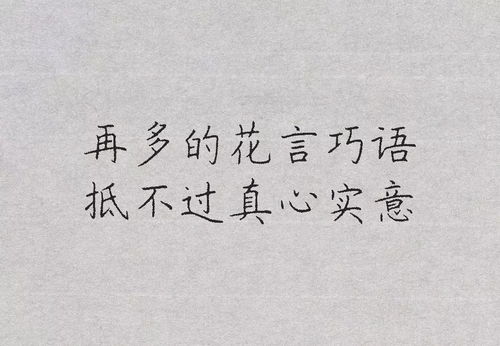 再多的花言巧语
抵不过真心实意